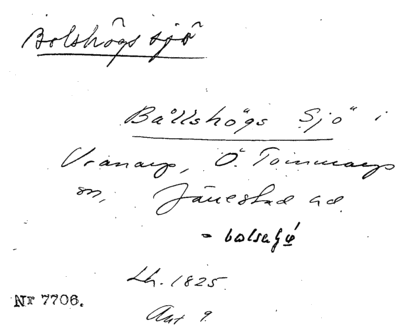 Bolshögs sjö
Bållshögs Sjö i
Vranarp, Ö. Tommarps
sn, Järrestad hd.
= bolsasjø
Lh. 1825.
Akt 9.
Nr 7706.